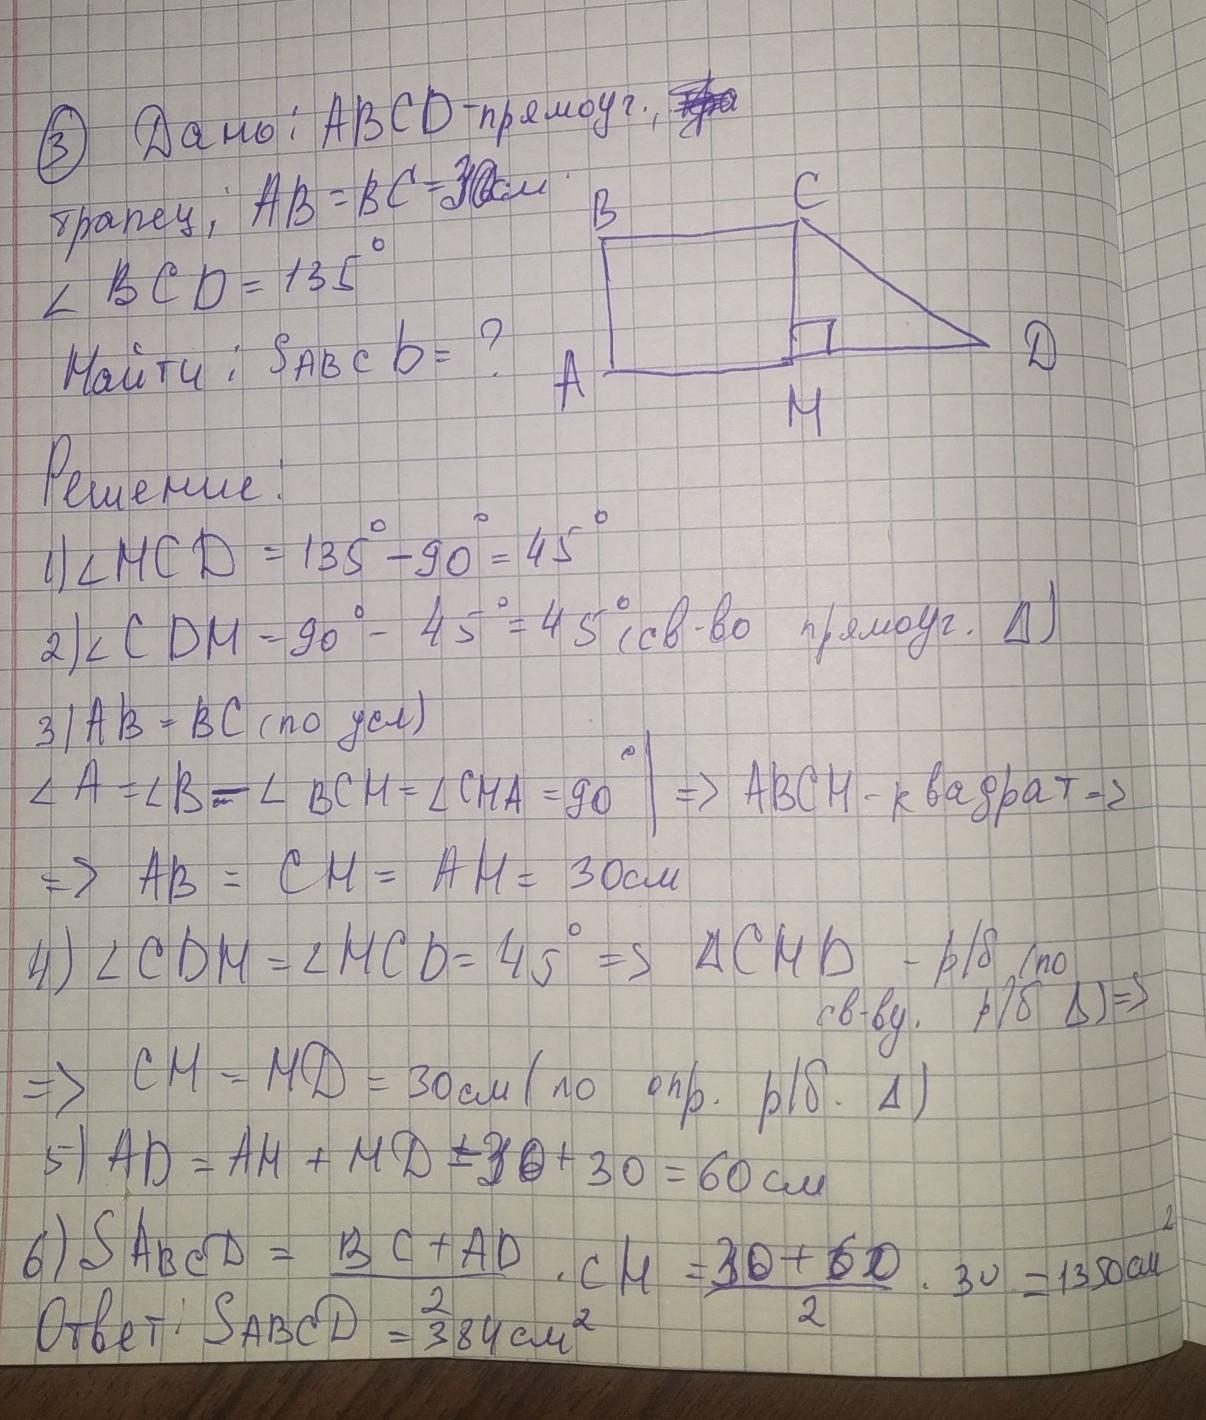 3 Дано: ABCD-прямоуг.,
трапец; AB=BC=30см
∠BCD=135°
Найти: SABCD=?
B C
A H D
Решение:
1)∠HCD=135°-90°=45°
2)∠CDH=90°-45°=45°(св-во прямоуг. Δ)
3)AB=BC(по усл)
∠A=∠B=∠BCH=∠CHA=90° | => ABCH-квадрат =>
=> AB=CH=AH=30см
4)∠CDH=∠HCD=45° => ΔCHD - р/б (по
св-ву. р/б Δ)=>
=> CH=HD=30см(по опр. р/б. Δ)
5)AD=AH+HD=30+30=60см
6)SABCD=(BC+AD)/2·CH=(30+60)/2·30=1350см²
Ответ: SABCD=384см²